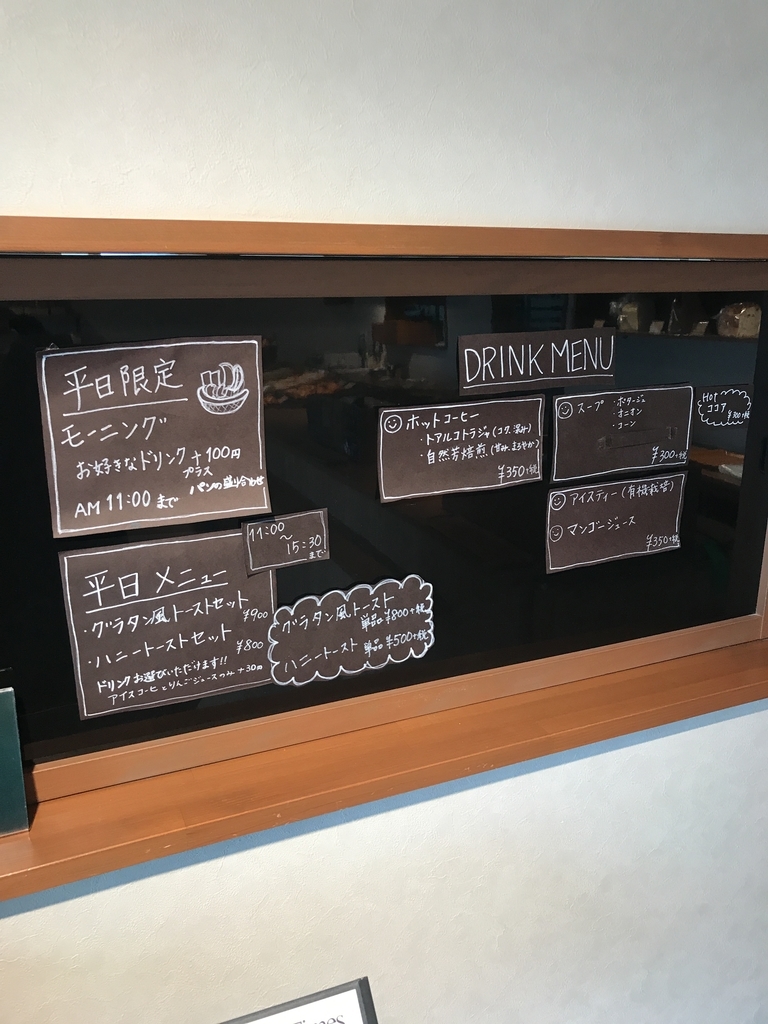 平日限定
モーニング
お好きなドリンク+100円
プラス
パンの盛り合わせ
AM 11:00 まで
11:00
〜
15:30
まで
平日メニュー
・グラタン風トーストセット
¥900
・ハニートーストセット
¥800
ドリンクお選びいただけます!!
アイスコーヒーとりんごジュースのみ +30円
グラタン風トースト
単品 ¥800+税
ハニートースト 単品 ¥500+税
DRINK MENU
ホットコーヒー
・トアルコトラジャ(コク、深み)
・自然芳焙煎(甘み、まろやか)
¥350+税
スープ ・ポタージュ
・オニオン
・コーン
¥300+税
HOT
ココア
アイスティー(有機栽培)
マンゴージュース
¥350+税